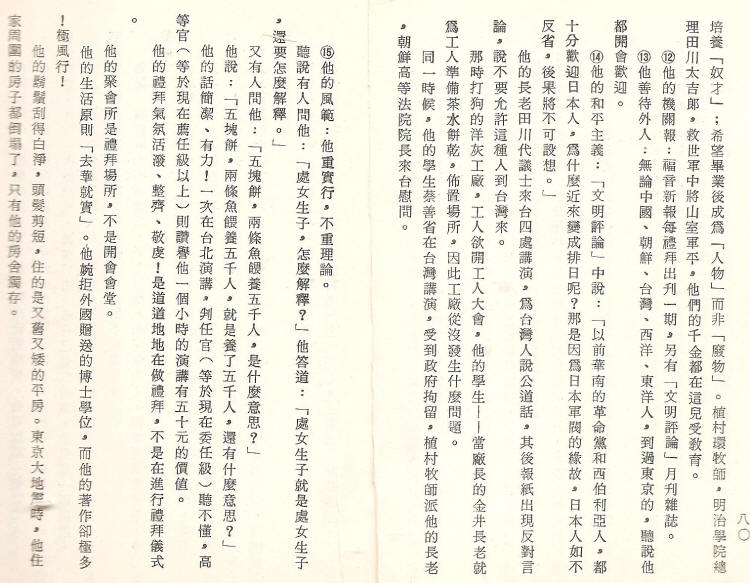 八〇
培養「奴才」;希望畢業後成爲「人物」而非「廢物」。植村環牧師,明治學院總
理田川太吉郎,救世軍中將山室軍平,他們的千金都在這兒受教育。
⑫他的機關報:福音新報每禮拜出刊一期,另有「文明評論」月刊雜誌。
⑬他善待外人:無論中國、朝鮮、台灣、西洋、東洋人,到過東京的,聽說他
都開會歡迎。
⑭他的和平主義:「文明評論」中說:「以前華南的革命黨和西伯利亞人,都
十分歡迎日本人,爲什麼近來變成排日呢?那是因爲日本軍閥的緣故,日本人如不
反省,後果將不可設想。」
他的長老田川代議士來台四處講演,爲台灣人說公道話,其後報紙出現反對言
論,說不要允許這種人到台灣來。
那時打狗的洋灰工廠,工人欲開工人大會,他的學生——當廠長的金井長老就
爲工人準備茶水餅乾,佈置場所,因此工廠從沒發生什麼問題。
同一時候,他的學生蔡善省在台灣講演,受到政府拘留,植村牧師派他的長老
,朝鮮高等法院院長來台慰問。
⑮他的風範:他重實行,不重理論。
聽說有人問他:「處女生子,怎麼解釋?」他答道:「處女生子就是處女生子
,還要怎麼解釋。」
又有人問他:「五塊餅,兩條魚餵養五千人,是什麼意思?」
他說:「五塊餅,兩條魚餵養五千人,就是養了五千人,還有什麼意思?」
他的話簡潔、有力!一次在台北演講,判任官(等於現在委任級)聽不懂,高
等官(等於現在薦任級以上)則讚譽他一個小時的演講有五十元的價值。
他的禮拜氣氛活潑、整齊、敬虔!是道道地地在做禮拜,不是在進行禮拜儀式
。
他的聚會所是禮拜場所,不是開會會堂。
他的生活原則「去華就實」。他婉拒外國贈送的博士學位,而他的著作卻極多
!極風行!
他的鬍鬚刮得白淨,頭髮剪短,住的是又舊又矮的平房。東京大地震時,他住
家周圍的房子都倒塌了,只有他的房舍獨存。